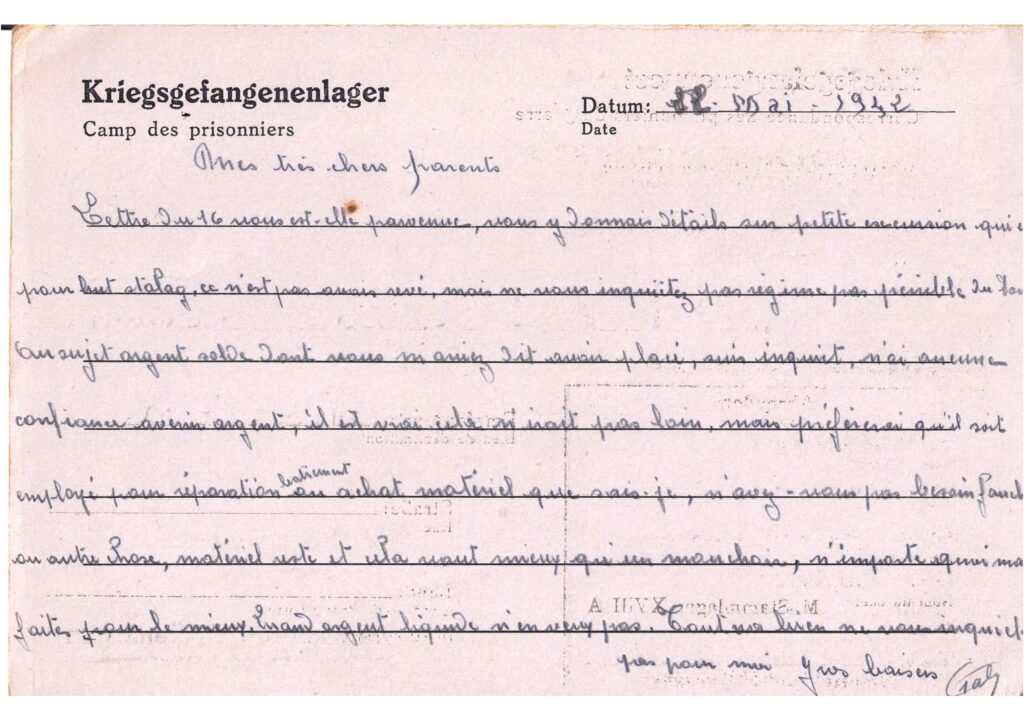 Kriegsgefangenenlager
Camp des prisonniers
Datum: 22 - Mai - 1942
Date
Mes très chers parents
Lettre du 16 vous est-elle parvenue, vous y donnais détails sur petite excursion qui
pour but stalag, ce n'est pas avais rêvé, mais ne vous inquiétez pas régime pas pénible du
Au sujet argent solde dont vous m'aviez dit avoir placé, suis inquiet, n'ai aucune
confiance avenir argent, il est vrai cela n'irait pas loin, mais préférerai qu'il soit
employé pour réparation batiment ou achat matériel que sais-je, n'avez-vous pas besoin
ou autre chose, matériel reste et cela vaut mieux qu'un mouchoir, n'importe quoi
faites pour le mieux. Quand argent liquide n'en veux pas. Tout va bien ne vous
pas pour moi Gros baisers
M. Stammlager XVIII A